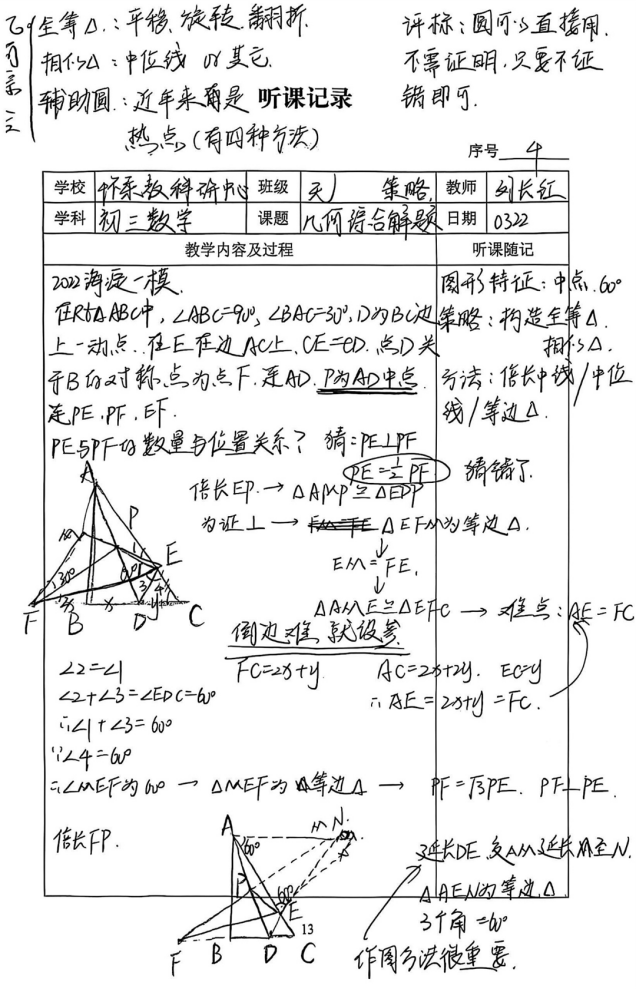 全等△：平移、旋转、翻折.
相似△：中位线 or 其它.
辅助圆：近年来算是
热点（有四种方法）
评标：圆可以直接用.
不需证明，只要不证
错即可.
听课记录
序号 4
学校 怀柔教科研中心 班级 策略 教师 刘长红
学科 初三数学 课题 几何综合解题 日期 0322
教学内容及过程 听课随记
2022海淀一模.
在Rt△ABC中，∠ABC=90°，∠BAC=30°，D为BC边
上一动点. 在E在边AC上，CE=CD. 点D关
于B的对称点为点F. 连AD. P为AD中点.
连PE，PF，EF.
PE与PF的数量与位置关系？ 猜：PE⊥PF
PE=½PF 猜错了
图形特征：中点、60°
策略：构造全等△.
相似△.
方法：倍长中线/中位
线/等边△.
倍长EP. → △AMP≌△EDP
为证⊥ → △EFM为等边△.
↓
EM=FE.
↓
△AME≌△EFC → 难点：AE=FC
倒边难，就设参
A
M
P
E
F B D C
x x y
1 2 3 4
30° 60°
∠2=∠1 FC=2x+y AC=2x+2y. EC=y
∠2+∠3=∠EDC=60° ∴AE=2x+y=FC.
∴∠1+∠3=60°
∵∠4=60°
∴∠MEF为60° → △MEF为等边△ → PF=√3PE. PF⊥PE.
倍长FP.
A M N
60°
P
60°
E
F B D C
13
延长DE，交AM延长线至N.
△AEN为等边△
3个角=60°
作图方法很重要.